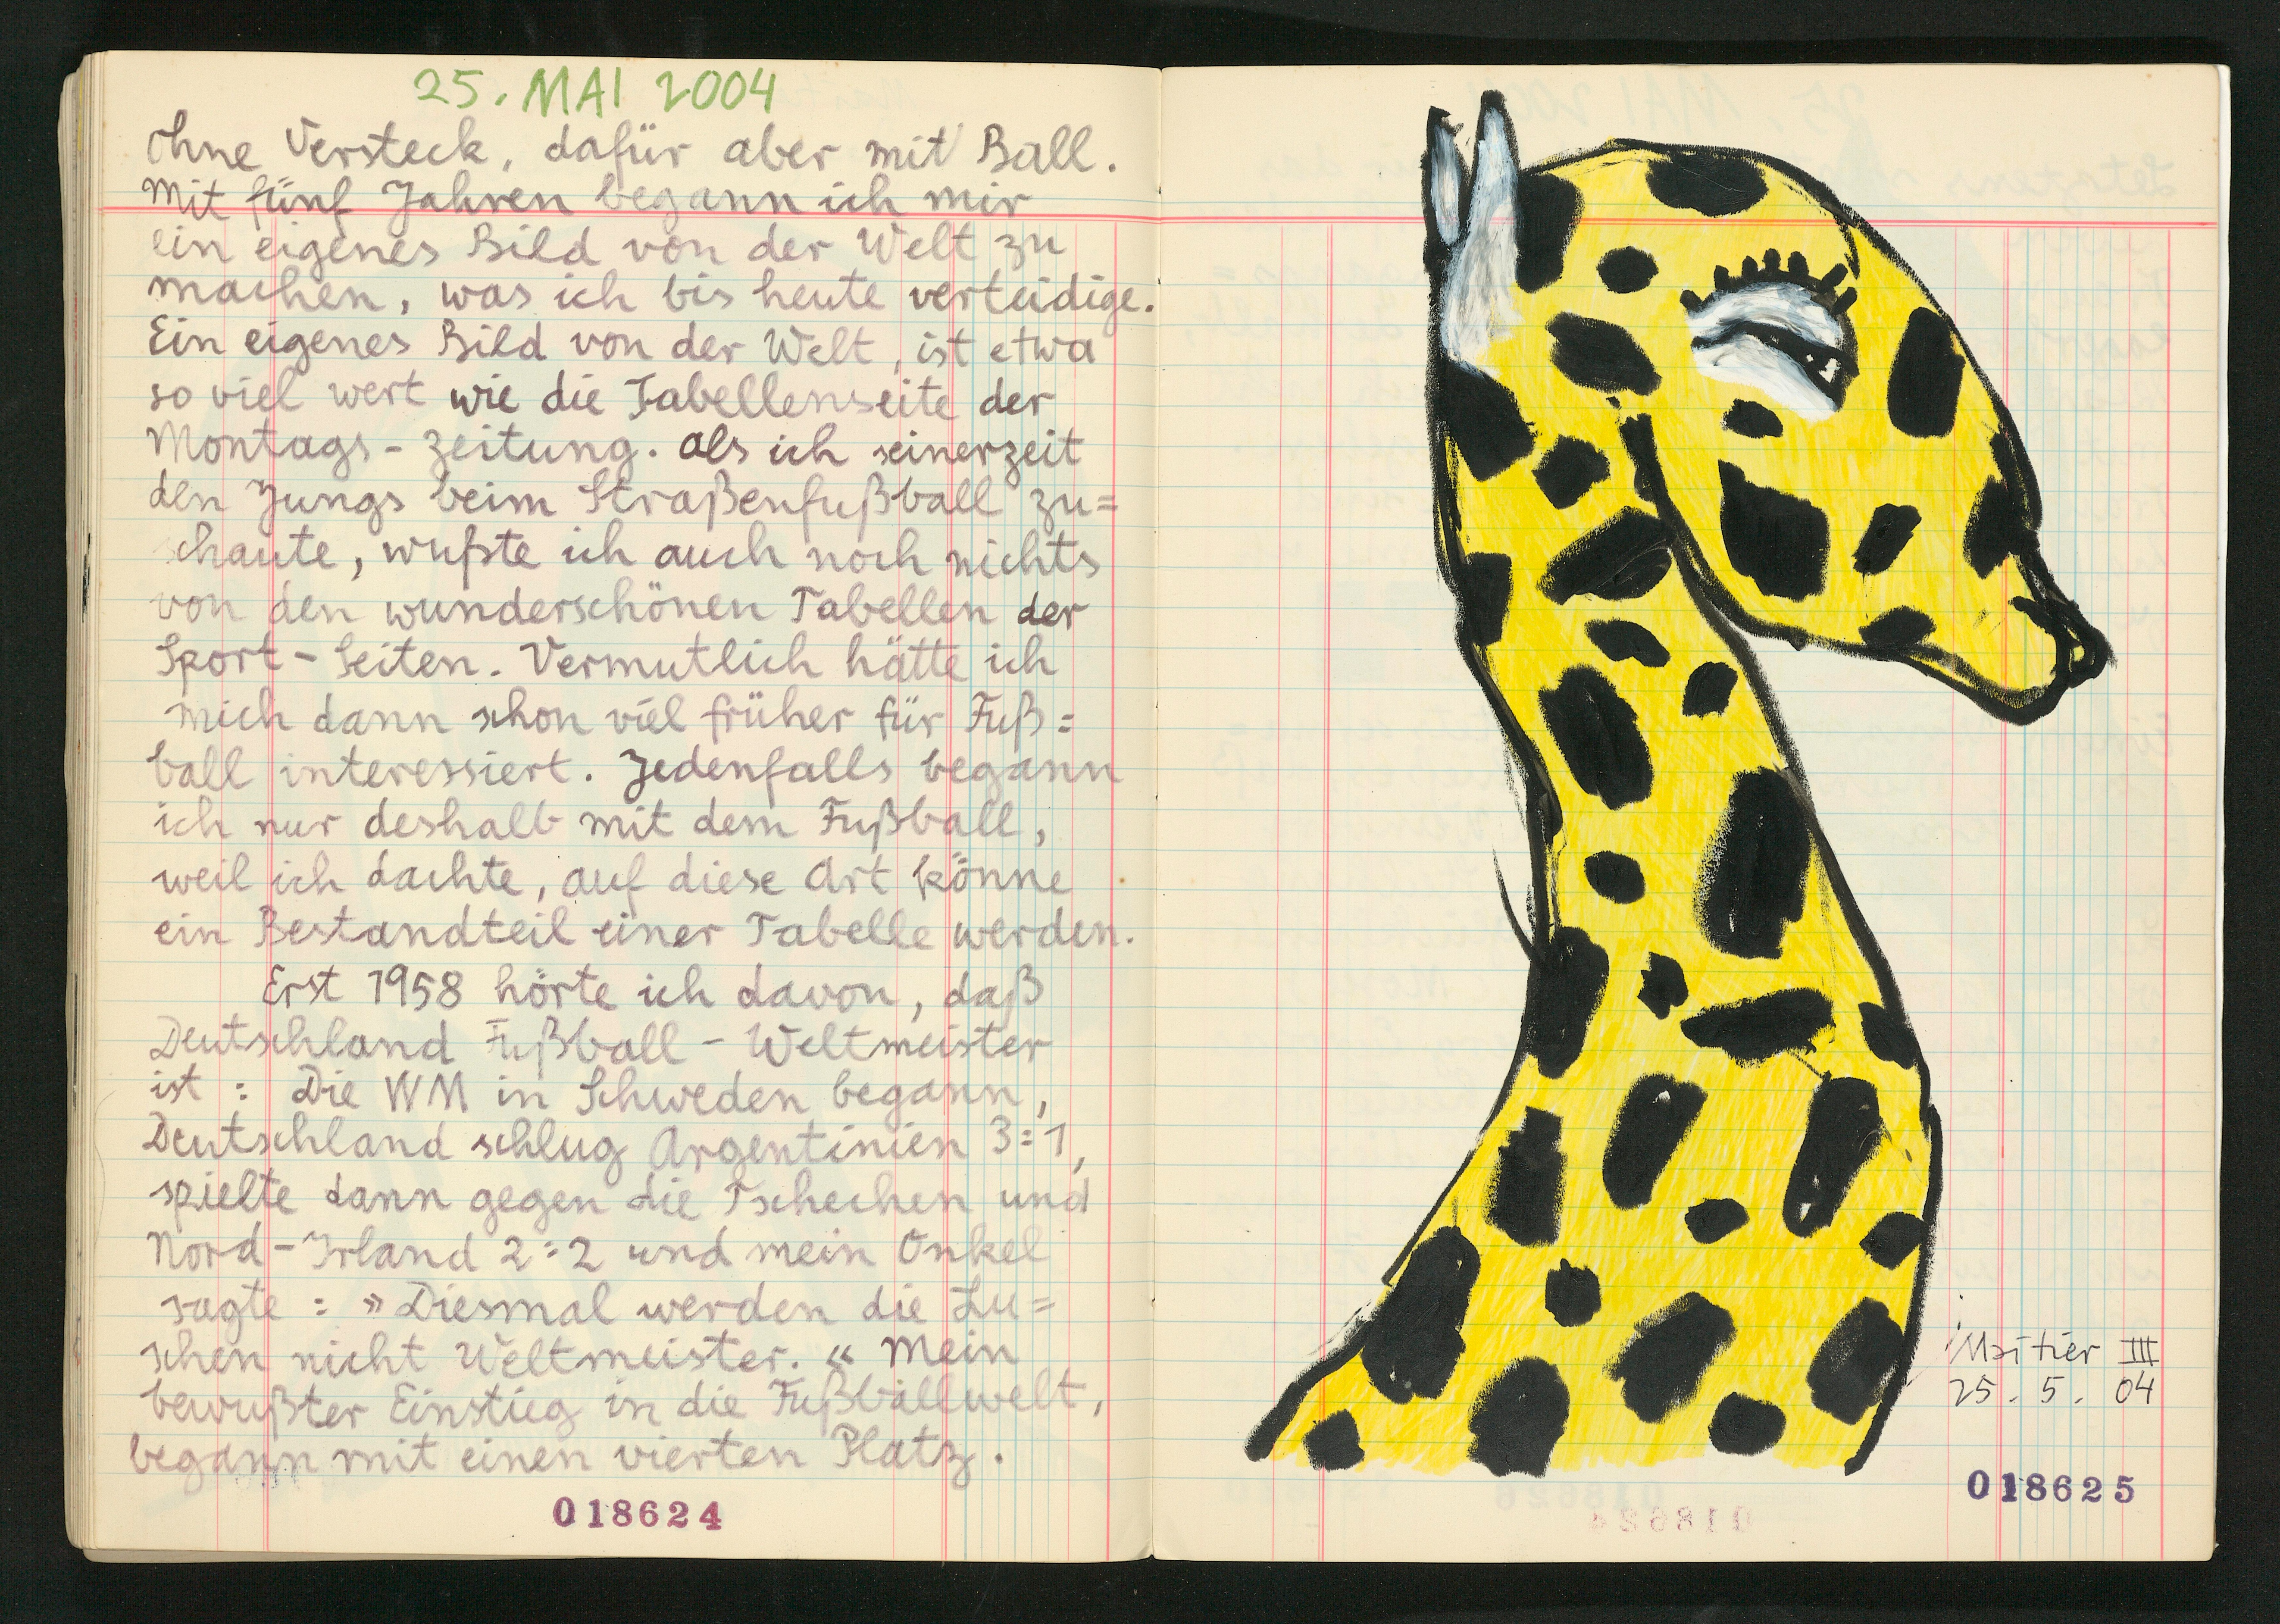 25. MAI 2004
Ohne Versteck, dafür aber mit Ball.
Mit fünf Jahren begann ich mir
ein eigenes Bild von der Welt zu
machen, was ich bis heute verteidige.
Ein eigenes Bild von der Welt, ist etwa
so viel wert wie die Tabellenseite der
Montags-Zeitung. Als ich seinerzeit
den Jungs beim Straßenfußball zu=
schaute, wußte ich auch noch nichts
von den wunderschönen Tabellen der
Sport-Seiten. Vermutlich hätte ich
mich dann schon viel früher für Fuß=
ball interessiert. Jedenfalls begann
ich nur deshalb mit dem Fußball,
weil ich dachte, auf diese Art könne
ein Bestandteil einer Tabelle werden.
Erst 1958 hörte ich davon, daß
Deutschland Fußball-Weltmeister
ist: Die WM in Schweden begann,
Deutschland schlug Argentinien 3:1,
spielte dann gegen die Tschechen und
Nord-Irland 2:2 und mein Onkel
sagte: »Diesmal werden die Lu=
schen nicht Weltmeister.« Mein
bewußter Einstieg in die Fußballwelt,
begann mit einen vierten Platz.
018624
Maitier III
25. 5. 04
018625